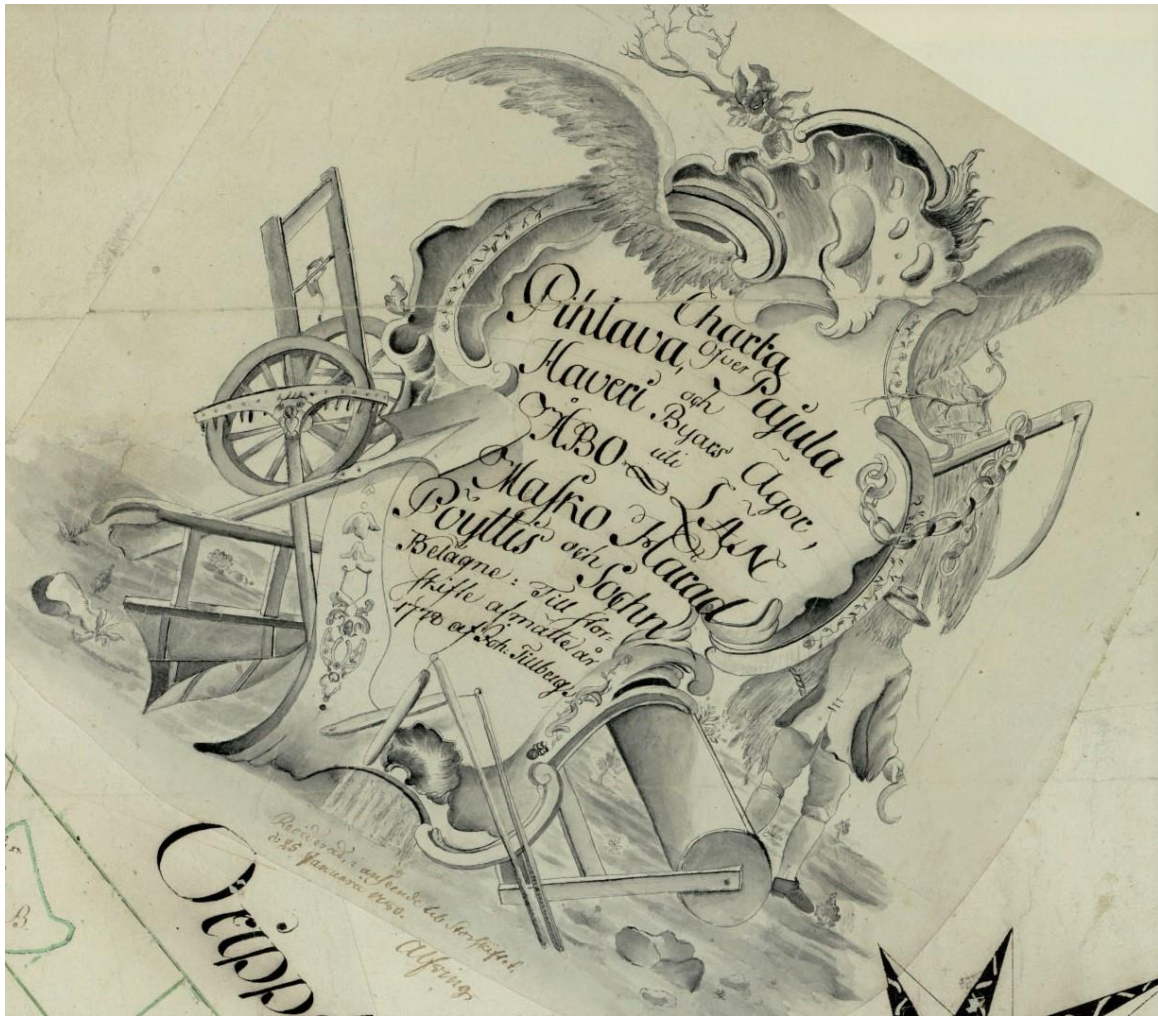 Charta
Öfver
Pihlava, Pajula
och
Haveri Byars Ägor,
uti
ÅBO LÄN
Masko Härad
och
Pöyttis Sochn
Belägne: Till stor-
skifte afmätte år
af Joh: Tillberg
Reviderad i anseende till Storskiftet,
d 25 Januarii
Alfving
Oripp
B.